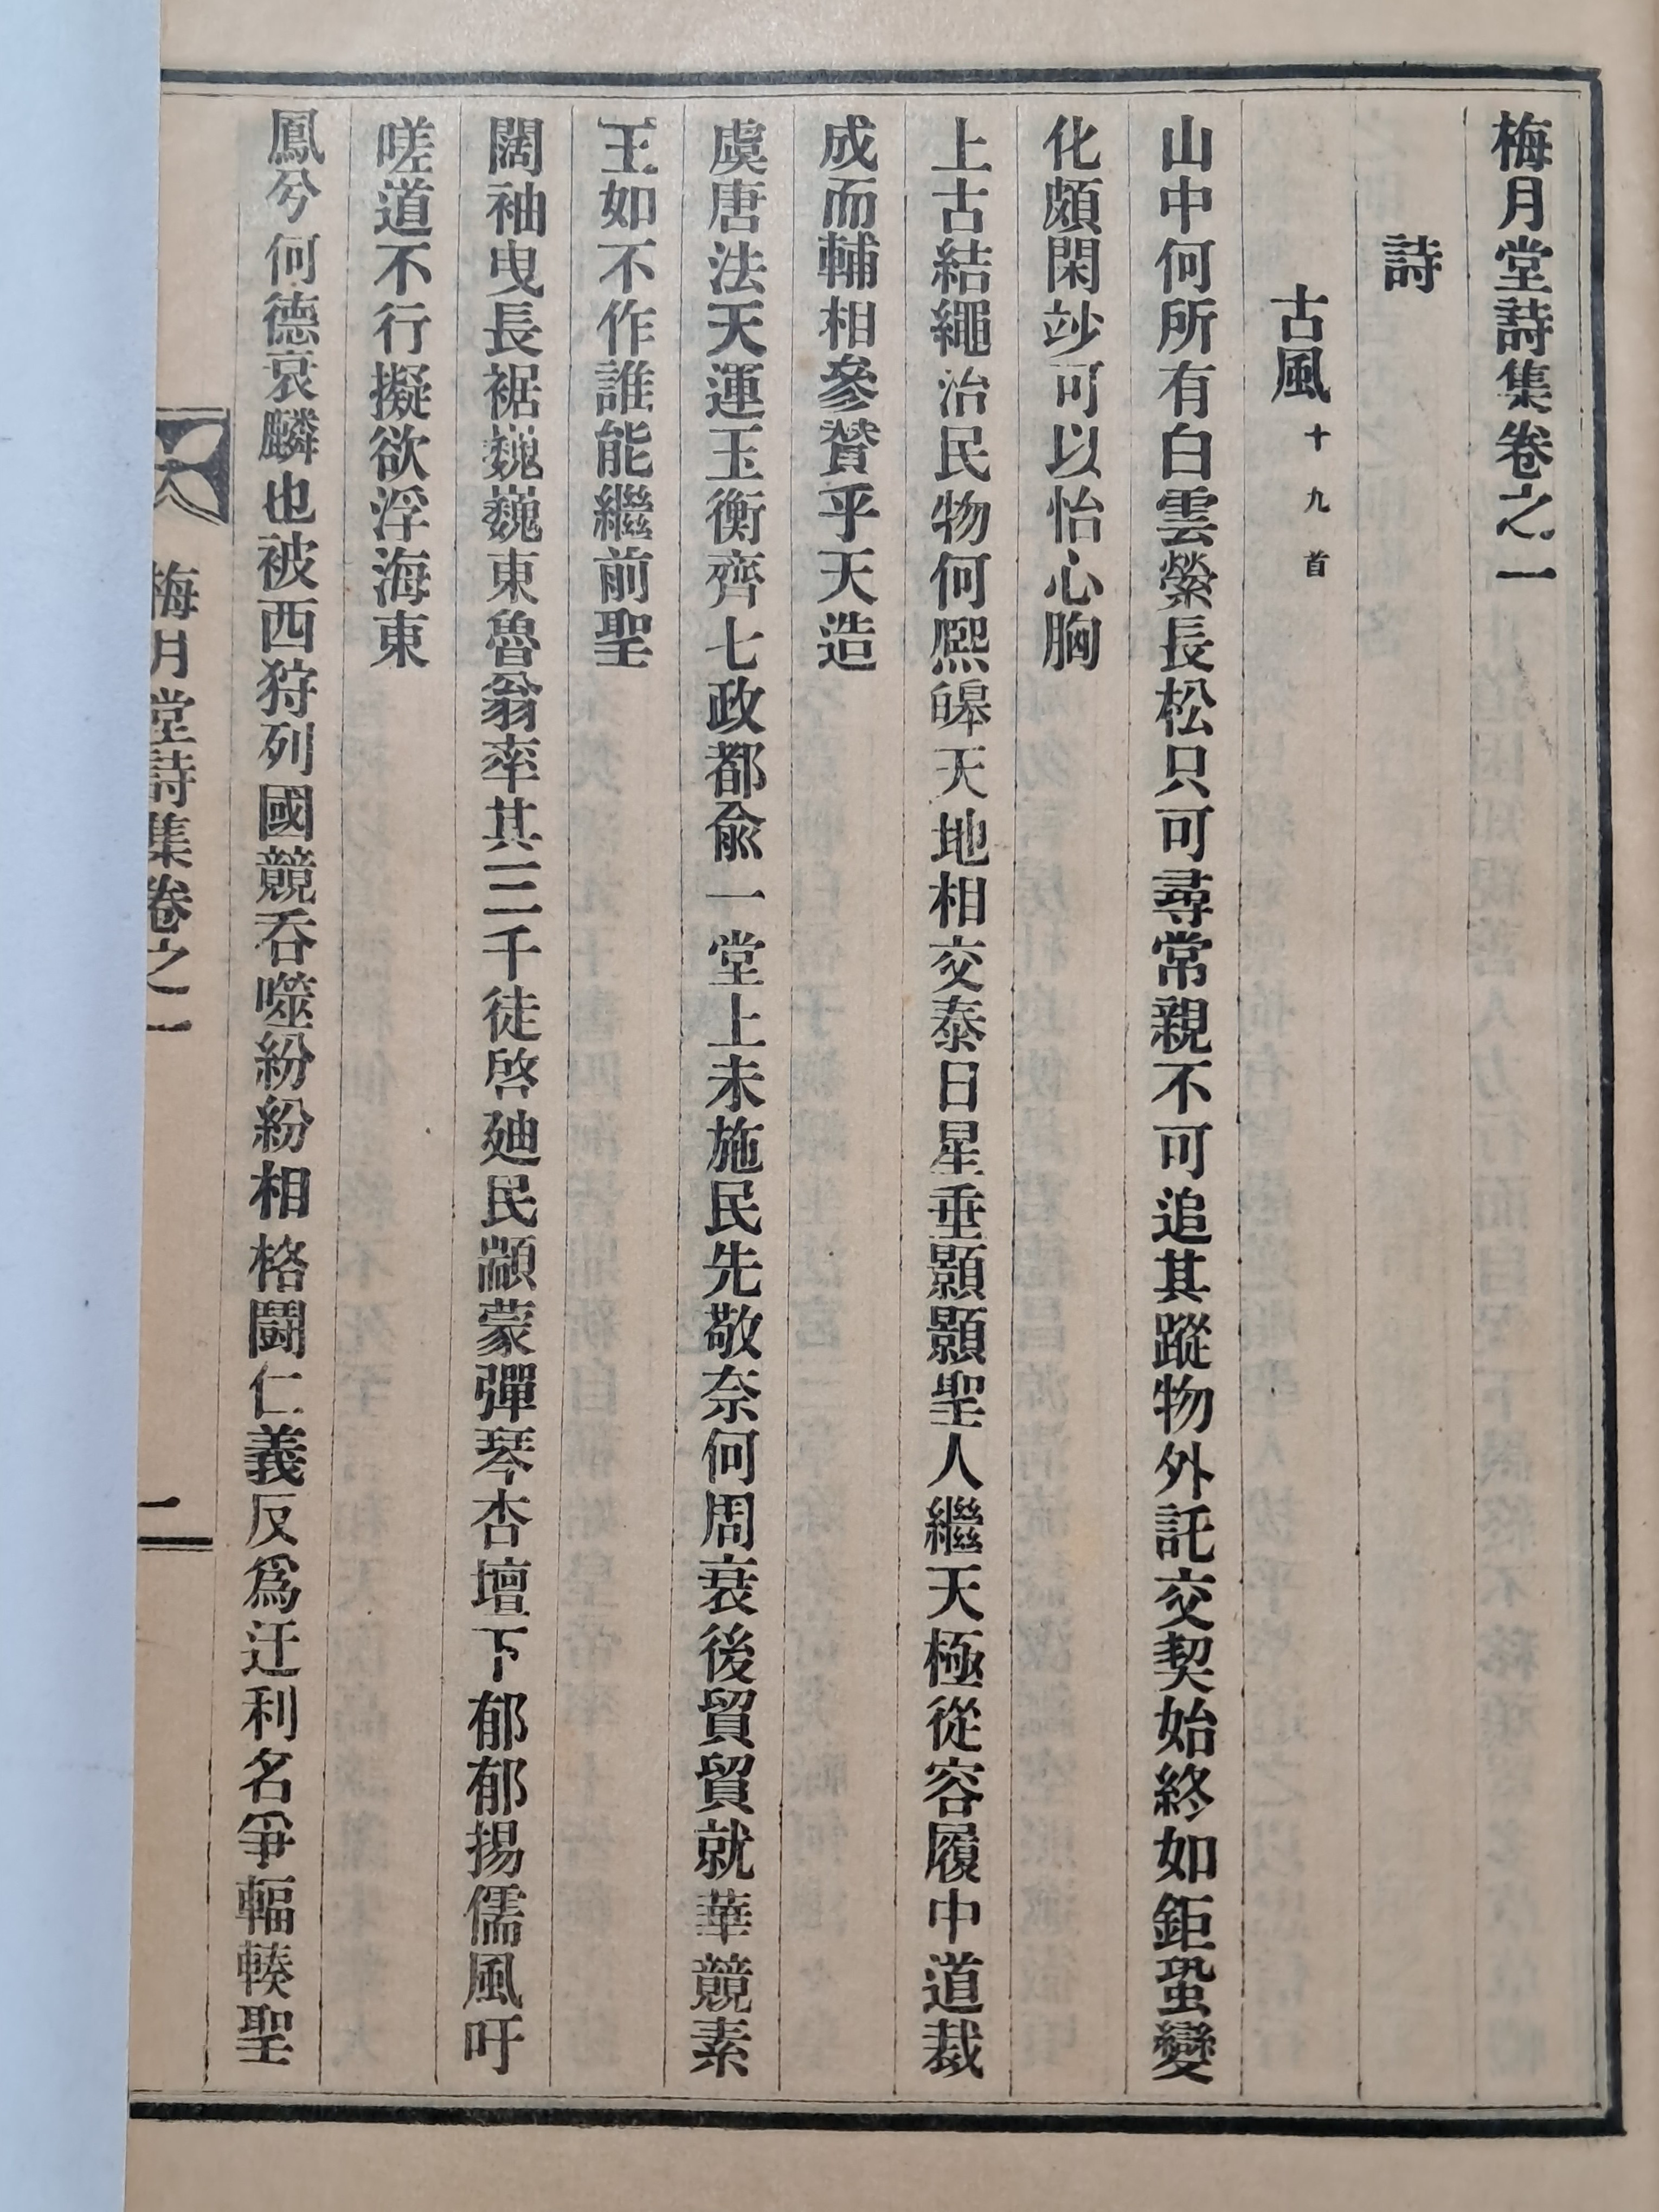 梅月堂詩集卷之一
詩
古風十九首
山中何所有白雲縈長松只可尋常親不可追其蹤物外託交契始終如鉅蛩變
化頗閑竗可以怡心胸
上古結繩治民物何熙皥天地相交泰日星垂顯顯聖人繼天極從容履中道裁
成而輔相參贊乎天造
虞唐法天運玉衡齊七政都兪一堂上未施民先敬奈何周衰後貿貿就華競素
王如不作誰能繼前聖
闊袖曳長裾巍巍東魯翁率其三千徒啓廸民顓蒙彈琴杏壇下郁郁揚儒風吁
嗟道不行擬欲浮海東
鳳兮何德衰麟也被西狩列國競吞噬紛紛相格鬪仁義反爲迂利名爭輻輳聖
梅月堂詩集卷之一
二